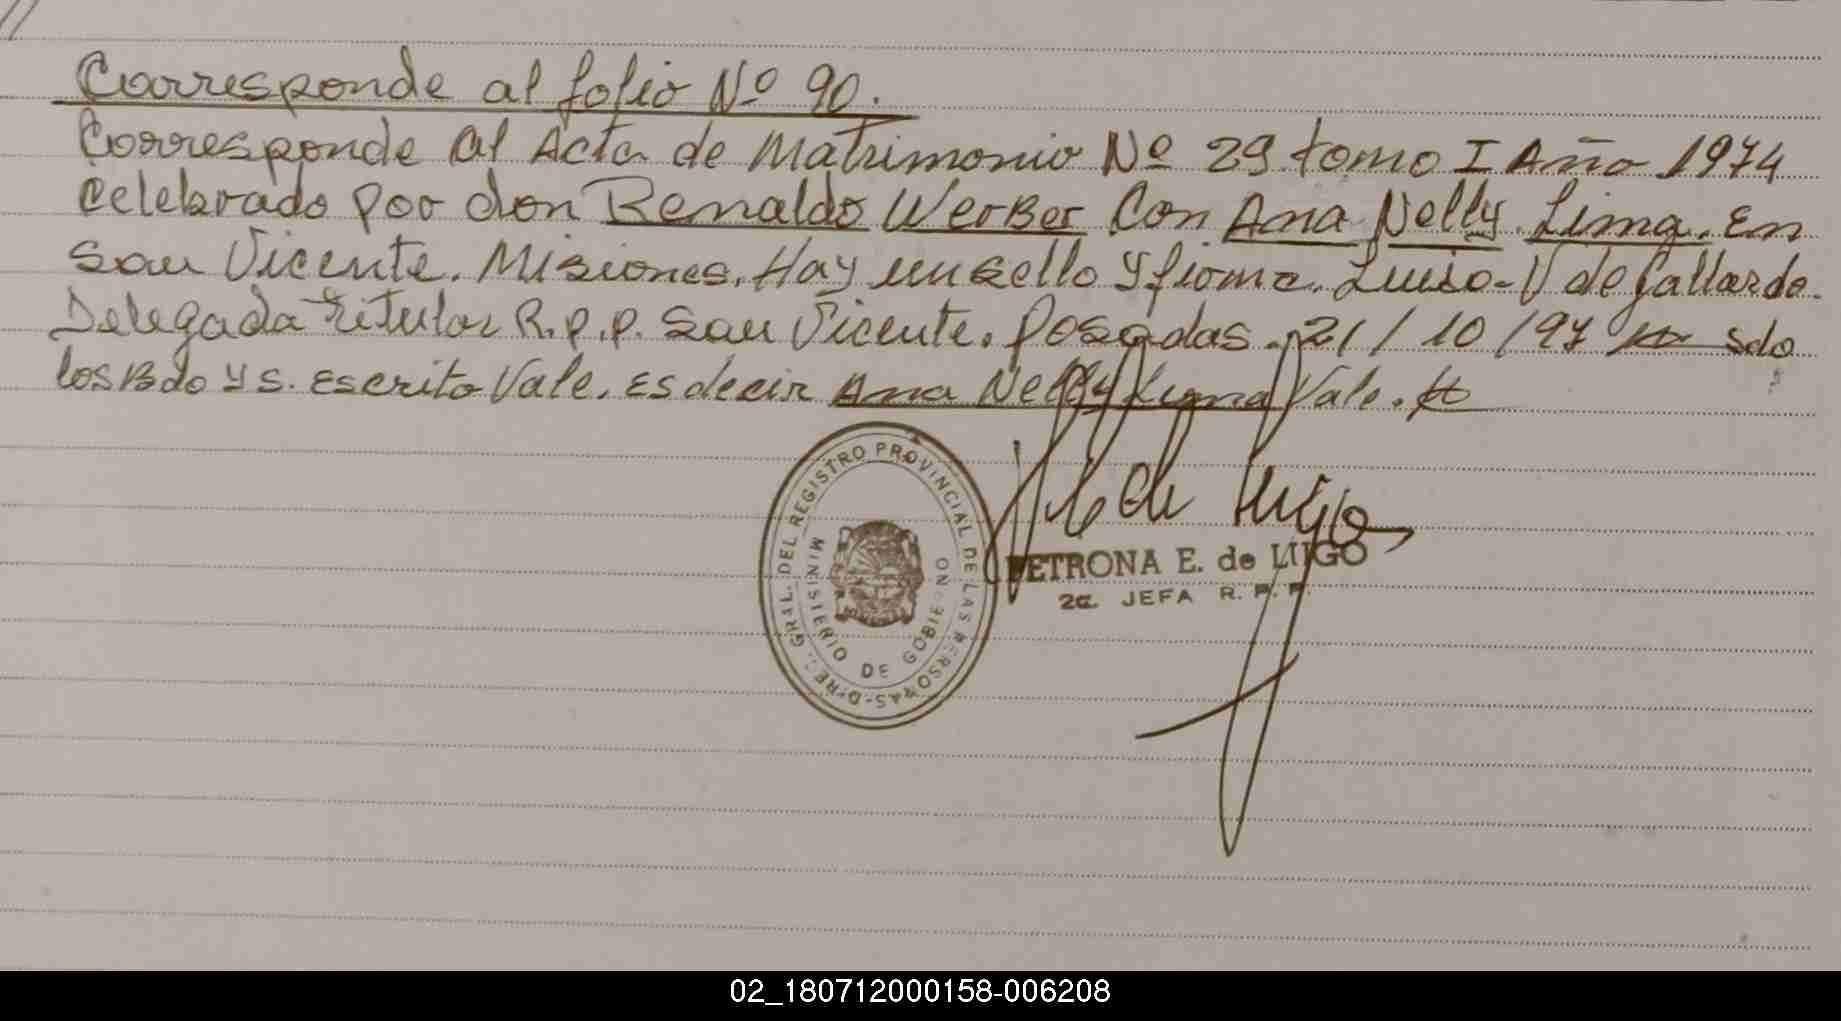 Corresponde al folio Nº 90.
Corresponde al Acta de Matrimonio Nº 29 tomo I Año 1974
Celebrado por don Renaldo Werber Con Ana Nelly Lima. En
San Vicente. Misiones. Hay un sello y firma. Luisa V de Gallardo.
Delegada Titular R.p.p. San Vicente. Posadas. 21/10/97 sdo
los Bdo y s. Escrito Vale. Es decir Ana Nelly Lima Vale.
DIREC. GRAL. DEL REGISTRO PROVINCIAL DE LAS PERSONAS
MINISTERIO DE GOBIERNO
PETRONA E. de LUGO
2a. JEFA R. P. P.
02_180712000158-006208